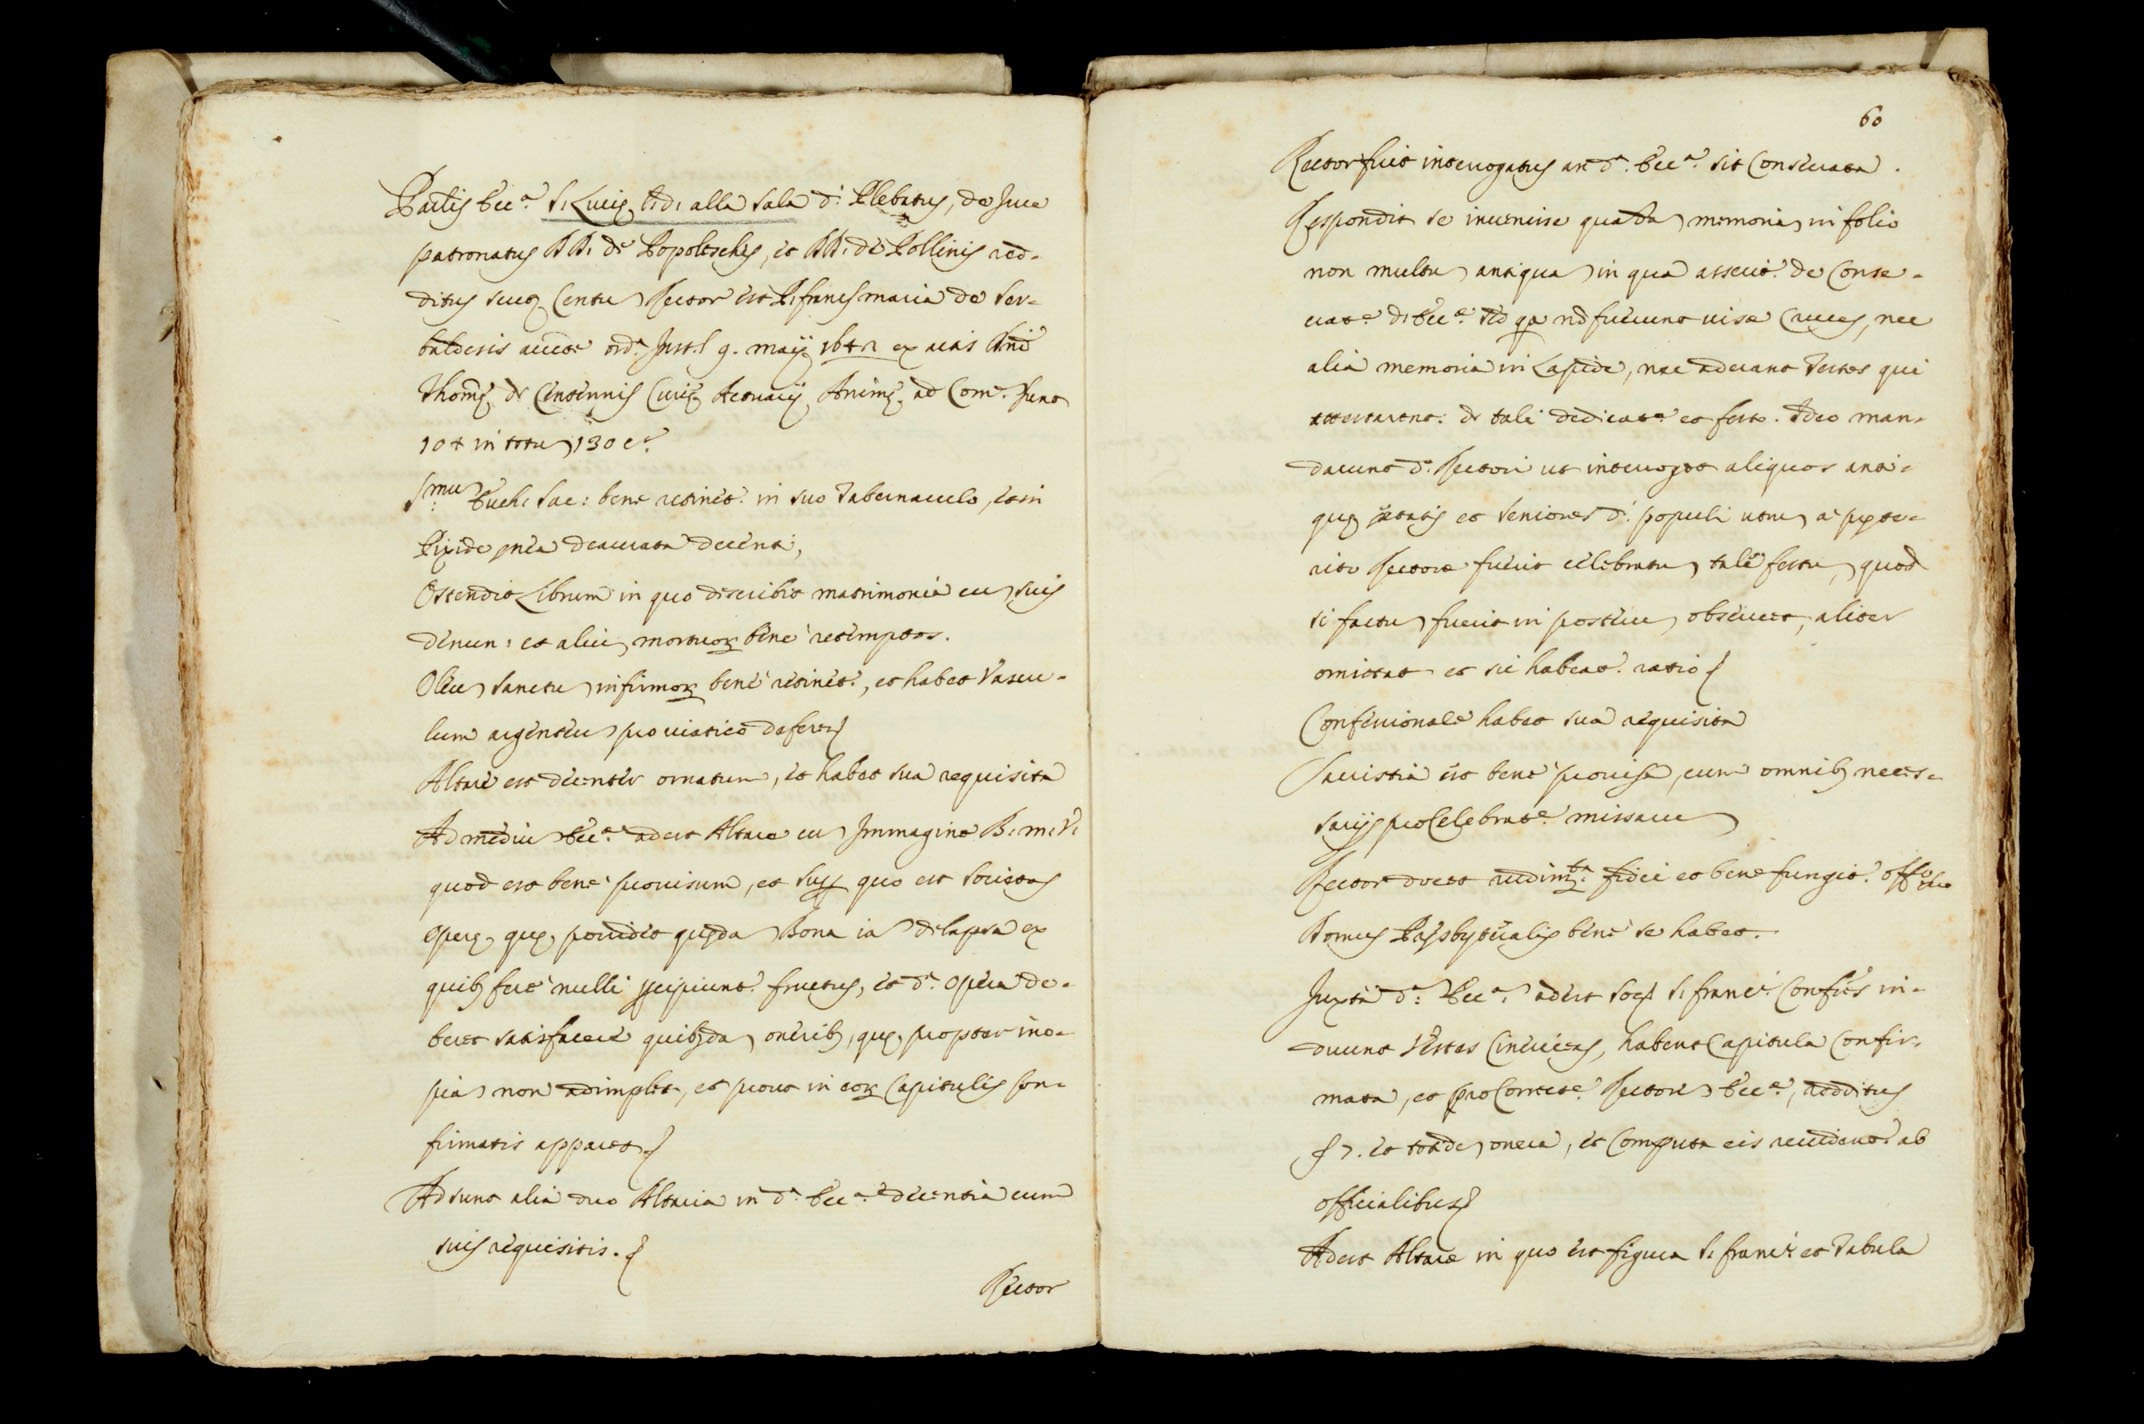 Partis Ecc.ª S. Lucię t.di alla Sala d.i Plebatus, de Jure
patronatus DD. de Popoleschis, et DD. de Pollinis red-
ditus scut. Centu Rector est P. franc.s maria de Ser-
ord.ª 9. maij 1642 ex actis Dni
Thomę de Centennis Curię Actuarij Animę ad Com. sunt
104 in totu 130 c.ª
S.mu Euch. Sac: bene retinet.r in suo Tabernaculo, et in
Pixide deaurata decenti,
Ostendit Librum in quo describit matrimonia cu suis
denun: et aliu mortuor bene retemptos.
Oleu Sanctu infirmor bene retinet.r, et habet Vascu-
lum argenteu pro viatico defer
Altare est decenter ornatum, et habet sua requisita
Ad mediu Ecc.ª adest Altare cu Immagine B. m. V.
quod est bene provisum, et sup quo est Societas
Operę, quę possidet quęda Bona ia dilapsa ex
quib fere nulli pcipiunt.r fructus, et d.ª Opera de-
beret satisfacere quibda onerib, quę propter ino-
pia non adimplet, et prout in eor Capitulis con-
firmatis apparet
Adsunt alia duo Altaria in d.ª Ecc.ª decentia cum
suis requisitis.
Rector
60
Rector fuit interrogatus an d.ª Ecc.ª sit Consecrata.
Respondit se invenisse quada memoria in folio
non multu antiqua in qua asserit.r de Conse-
crat.e d. Ecc.ª sed qa no fuerunt visæ Cruces, nec
alia memoria in Lapide, nec aderant Testes qui
attestarent.r de tali dedicat.e et festo. Ideo man-
darunt d.º Rectori ut interroget aliquos anti-
quę ętatis et Seniores d.i populi utru a pręte-
rito Rectore fuerit celebratu tale festu, quod
si factu fuerit in posteru observet, aliter
omittat et sic habeat.r ratio
Confessionale habet sua requisita
Sacristia est bene provisa, cum omnib neces-
sarijs pro Celebrat.e missaru
Rector docet rudim.ta fidei et bene fungit.r off.o suo
Domus Pręsbyteralis bene se habet.
Juxta d.ª Ecc.ª adest Soc. S. franc.i Confres in-
duunt Vestes Cinericeas, habent Capitula Confir-
mata, et pro Corrett.e Rectore Ecc.ę, redditus
7. et totide onera, et Computa eis revident.r ab
officialibus
Adest Altare in quo est figura S. franc.i et Tabula